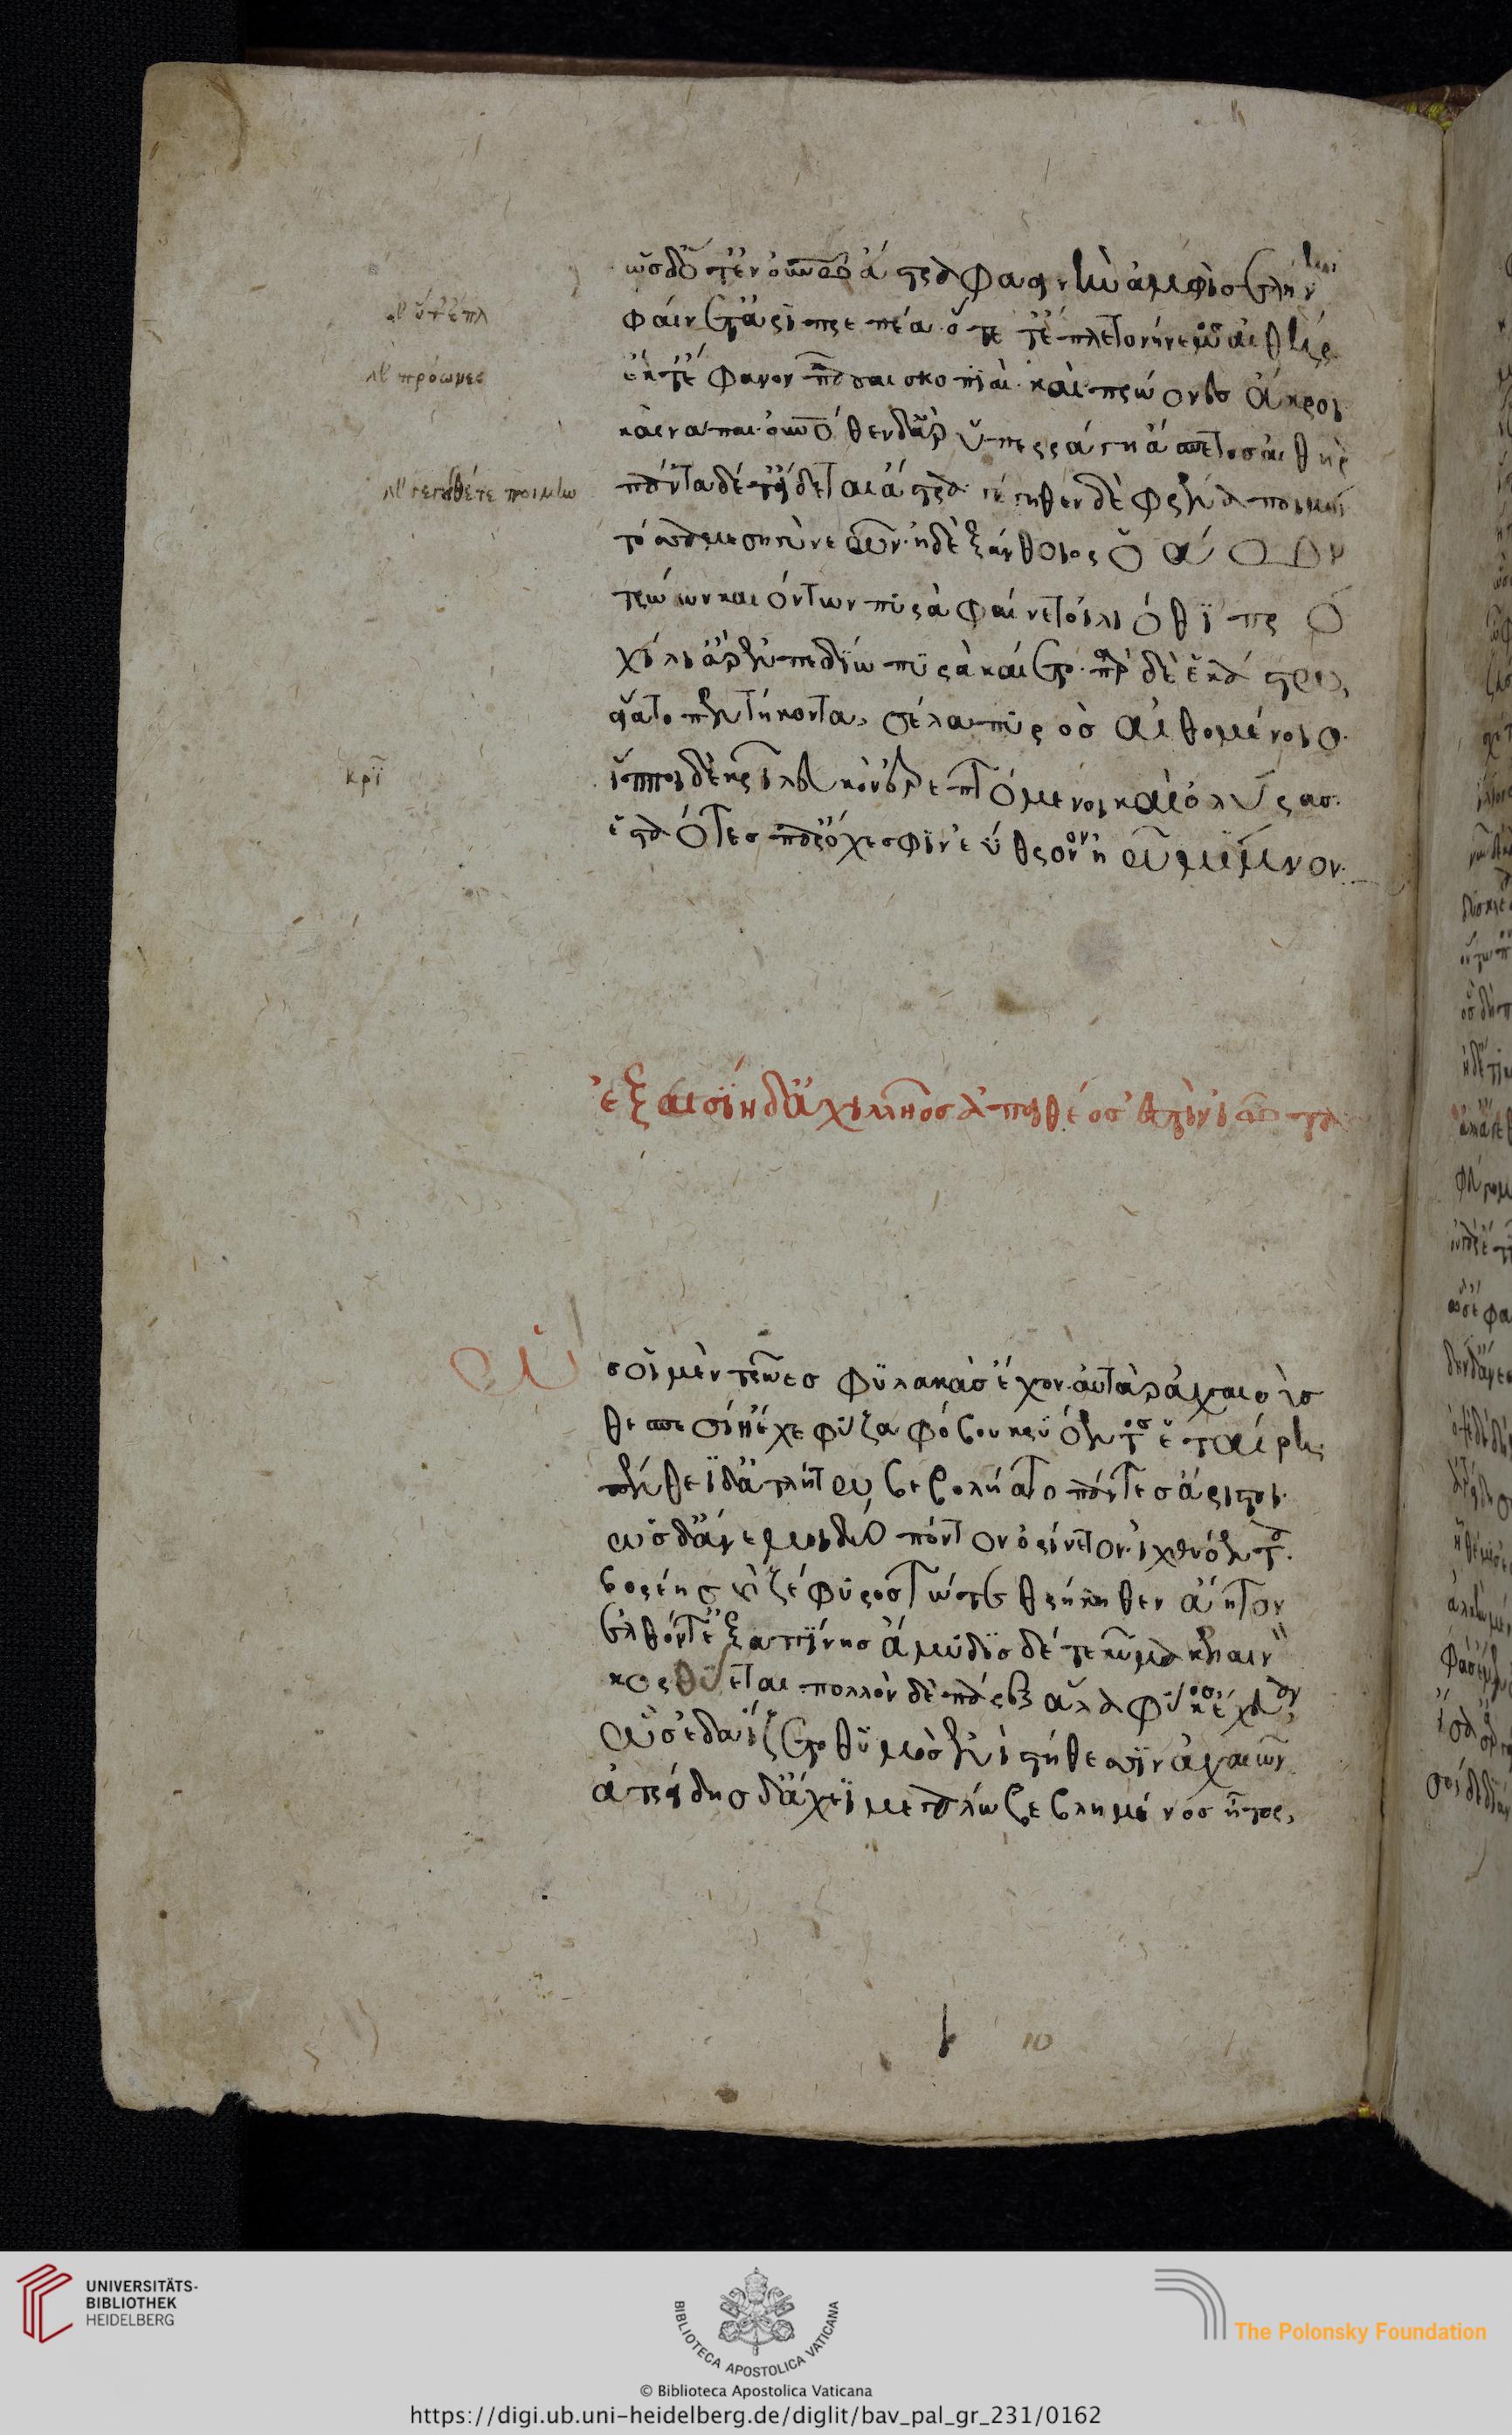 ὡσδ' ὅτ' ἐν οὐρανῶ ἄστρα φαεινὴν ἀμφὶ σελήνην
γρ' ὅτ' ἔπλ
φαίνετ' ἀριπρεπέα· ὅτε τ' ἔπλετο νήνεμος αἰθὴρ
γρ' πρώονες
ἔκ τ' ἔφανον πᾶσαι σκοπϊαὶ· καὶ πρώονες ἄκροι
καὶ νάπαι· οὐρανόθεν δ' ἄρ ὑπερράγη ἄσπετος αἰθὴρ
γρ' γέγηθέ τε ποιμὴν
πάντα δέ τ' εἴδεται ἄστρα· γέγηθεν δὲ φρένα ποιμήν
τόσσα μεσηγὺ νεῶν· ἠδὲ ξάνθοιο ῥοάων
τρώων καιόντων πῦρὰ φαίνετο ἰλιόθϊ πρό
χίλι' ἄρ' ἐν πεδίω πῦρὰ καίετο· πὰρ δὲ ἑκάστω
εἵατο πεντήκοντα, σέλα πυρὸσ αἰθομένοιο.
κρῖ
ἵπποι δὲ κρῖ λευκὸν ἐρεπτόμενοι καὶ ὀλύρασ.
ἑσταότεσ παρ' ὄχεσφιν ἐΰθρονον ἠῶ μίμνον.
ἐξαισίη δ' ἀχιλῆοσ ἀπειθέοσ ἐστὶν ἰῶτα
Ὡσ οἱ μὲν τρῶεσ φϋλακὰσ ἔχον· αὐτὰρ ἀχαιοὺσ
θεσπεσίη ἔχε φύζα φόβου κρυόεντοσ ἑταίρη·
πένθεϊ δ' ἀτλήτω βεβολήατο πάντεσ ἄριστοι.
ὡσ δ' ἄνεμοι δύο πόντον ὀρίνετον ἰχθυόεντα.
βορέησ καὶ ζέφϋροσ τώτε θρήκηθεν ἄητον
ἐλθόντ' ἐξαπίνησ ἄμϋδϊσ δέ τε κῦμα κελαινὸν
κορθύεται· πολλὸν δὲ πάρεξ ἅλα φῦκοσ ἔχευαν
ὡσ ἐδαΐζετο θϋμὸσ ἐνὶ στήθεσσϊν ἀχαιῶν.
ἀτρείδησ δ' ἄχεϊ μεγάλω βεβλημένοσ ἦτορ,
10
UNIVERSITÄTS-
BIBLIOTHEK
HEIDELBERG
BIBLIOTECA APOSTOLICA VATICANA
The Polonsky Foundation
© Biblioteca Apostolica Vaticana
https://digi.ub.uni-heidelberg.de/diglit/bav_pal_gr_231/0162